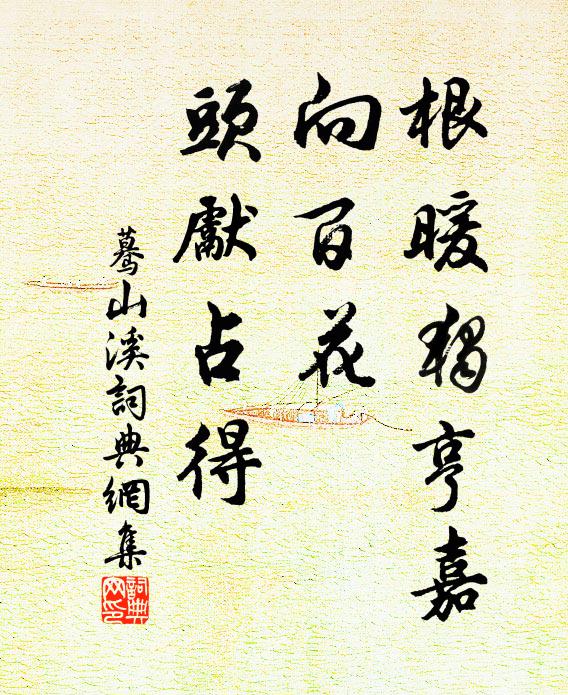 根暖獨亨嘉
向百花
頭獻占得
驀山溪詞典網集
詞典網印